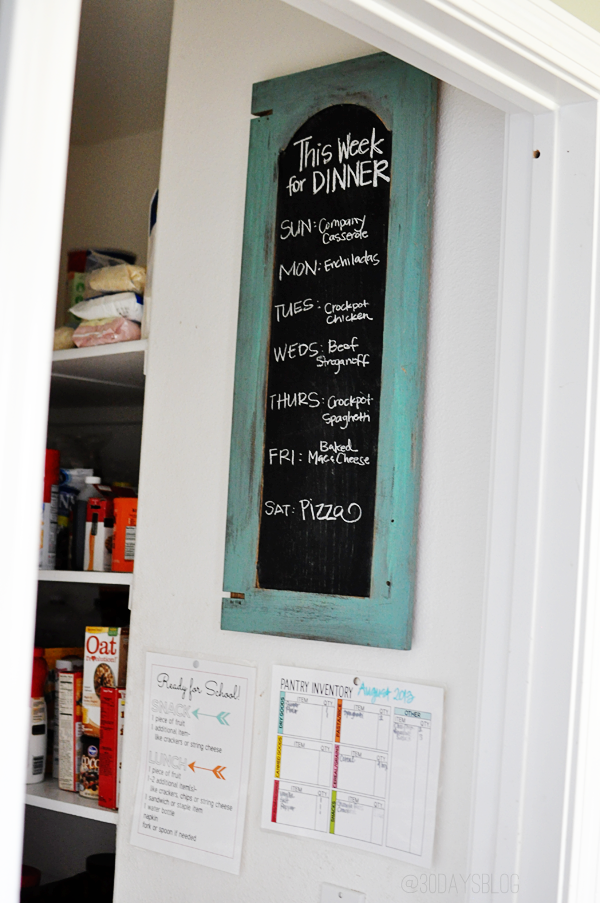 This Week
for DINNER
SUN: Company
Casserole
MON: Enchiladas
TUES: Crockpot
Chicken
WEDS: Beef
Stroganoff
THURS: Crockpot
Spaghetti
FRI: Baked
Mac & Cheese
SAT: Pizza
Oat
Ready for School!
SNACK
1 piece of fruit
1 additional item-
like crackers or string cheese
LUNCH
1 piece of fruit
1-2 additional items-
like crackers, chips or string cheese
1 sandwich or staple item
1 water bottle
napkin
fork or spoon if needed
PANTRY INVENTORY August 2013
DRY GOODS
ITEM QTY
PASTA/GRAINS
ITEM QTY
OTHER
ITEM
CANNED GOODS
ITEM QTY
ITEM QTY
ITEM QTY
SNACKS
ITEM QTY
@30DAYSBLOG